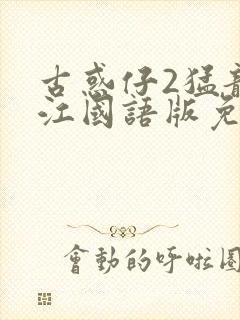 古惑仔2猛龍
江國語版免
會動的呼啦圈